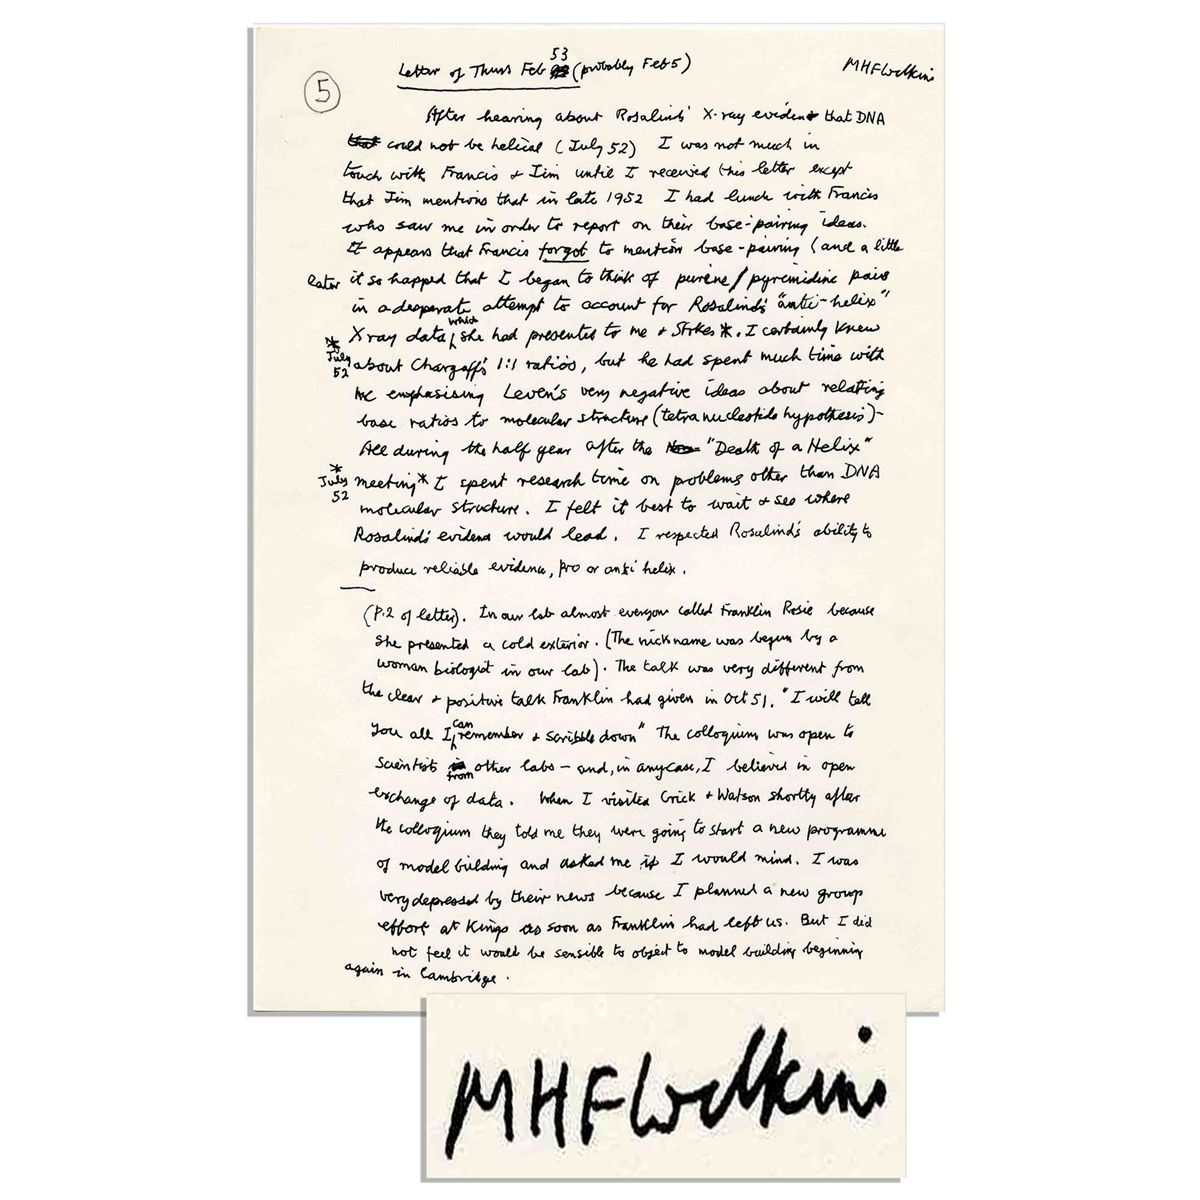 53
Letter of Thurs Feb (probably Feb 5)
MHFWilkins
5
After hearing about Rosalind's X-ray evidence that DNA
that could not be helical (July 52) I was not much in
touch with Francis + Jim until I received this letter except
that Jim mentions that in late 1952 I had lunch with Francis
who saw me in order to report on their base-pairing ideas.
It appears that Francis forgot to mention base-pairing (and a little
later it so happened that I began to think of purine/pyrimidine pairs
in a desperate attempt to account for Rosalind's "anti-helix"
X ray data which she had presented to me + Stokes *. I certainly knew
* July 52
about Chargaff's 1:1 ratios, but he had spent much time with
me emphasising Leven's very negative ideas about relating
base ratios to molecular structure (tetranucleotide hypothesis)-
All during the half year after the "Death of a Helix"
* July 52
meeting * I spent research time on problems other than DNA
molecular structure. I felt it best to wait + see where
Rosalind's evidence would lead. I respected Rosalind's ability to
produce reliable evidence, pro or anti helix.
(P.2 of letter). In our lab almost everyone called Franklin Rosie because
she presented a cold exterior. (The nickname was begun by a
woman biologist in our lab). The talk was very different from
the clear + positive talk Franklin had given in Oct 51. "I will tell
you all I can remember + scribble down" The colloquium was open to
scientists from other labs - and, in any case, I believed in open
exchange of data. When I visited Crick + Watson shortly after
the colloquium they told me they were going to start a new programme
of model building and asked me if I would mind. I was
very depressed by their news because I planned a new group
effort at Kings as soon as Franklin had left us. But I did
not feel it would be sensible to object to model building beginning
again in Cambridge.
MHFWilkins